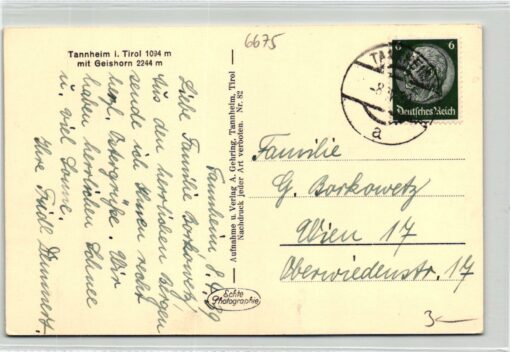 6675
Tannheim i. Tirol 1094 m
mit Geishorn 2244 m
Tannheim 8.4.39
Liebe Familie Borkowetz!
Aus den herrlichen Bergen
sende ich Ihnen
herzl. Ostergrüße. Wir
haben herrlichen Schnee
u. viel Sonne.
Ihre Friedl
Aufnahme u. Verlag A. Gehring, Tannheim, Tirol
Nachdruck jeder Art verboten. Nr. 82
Echte
Photographie
TANNHEIM
a
6
6
Deutsches Reich
Familie
G. Borkowetz
Wien 17
Oberwiedenstr. 17
3-